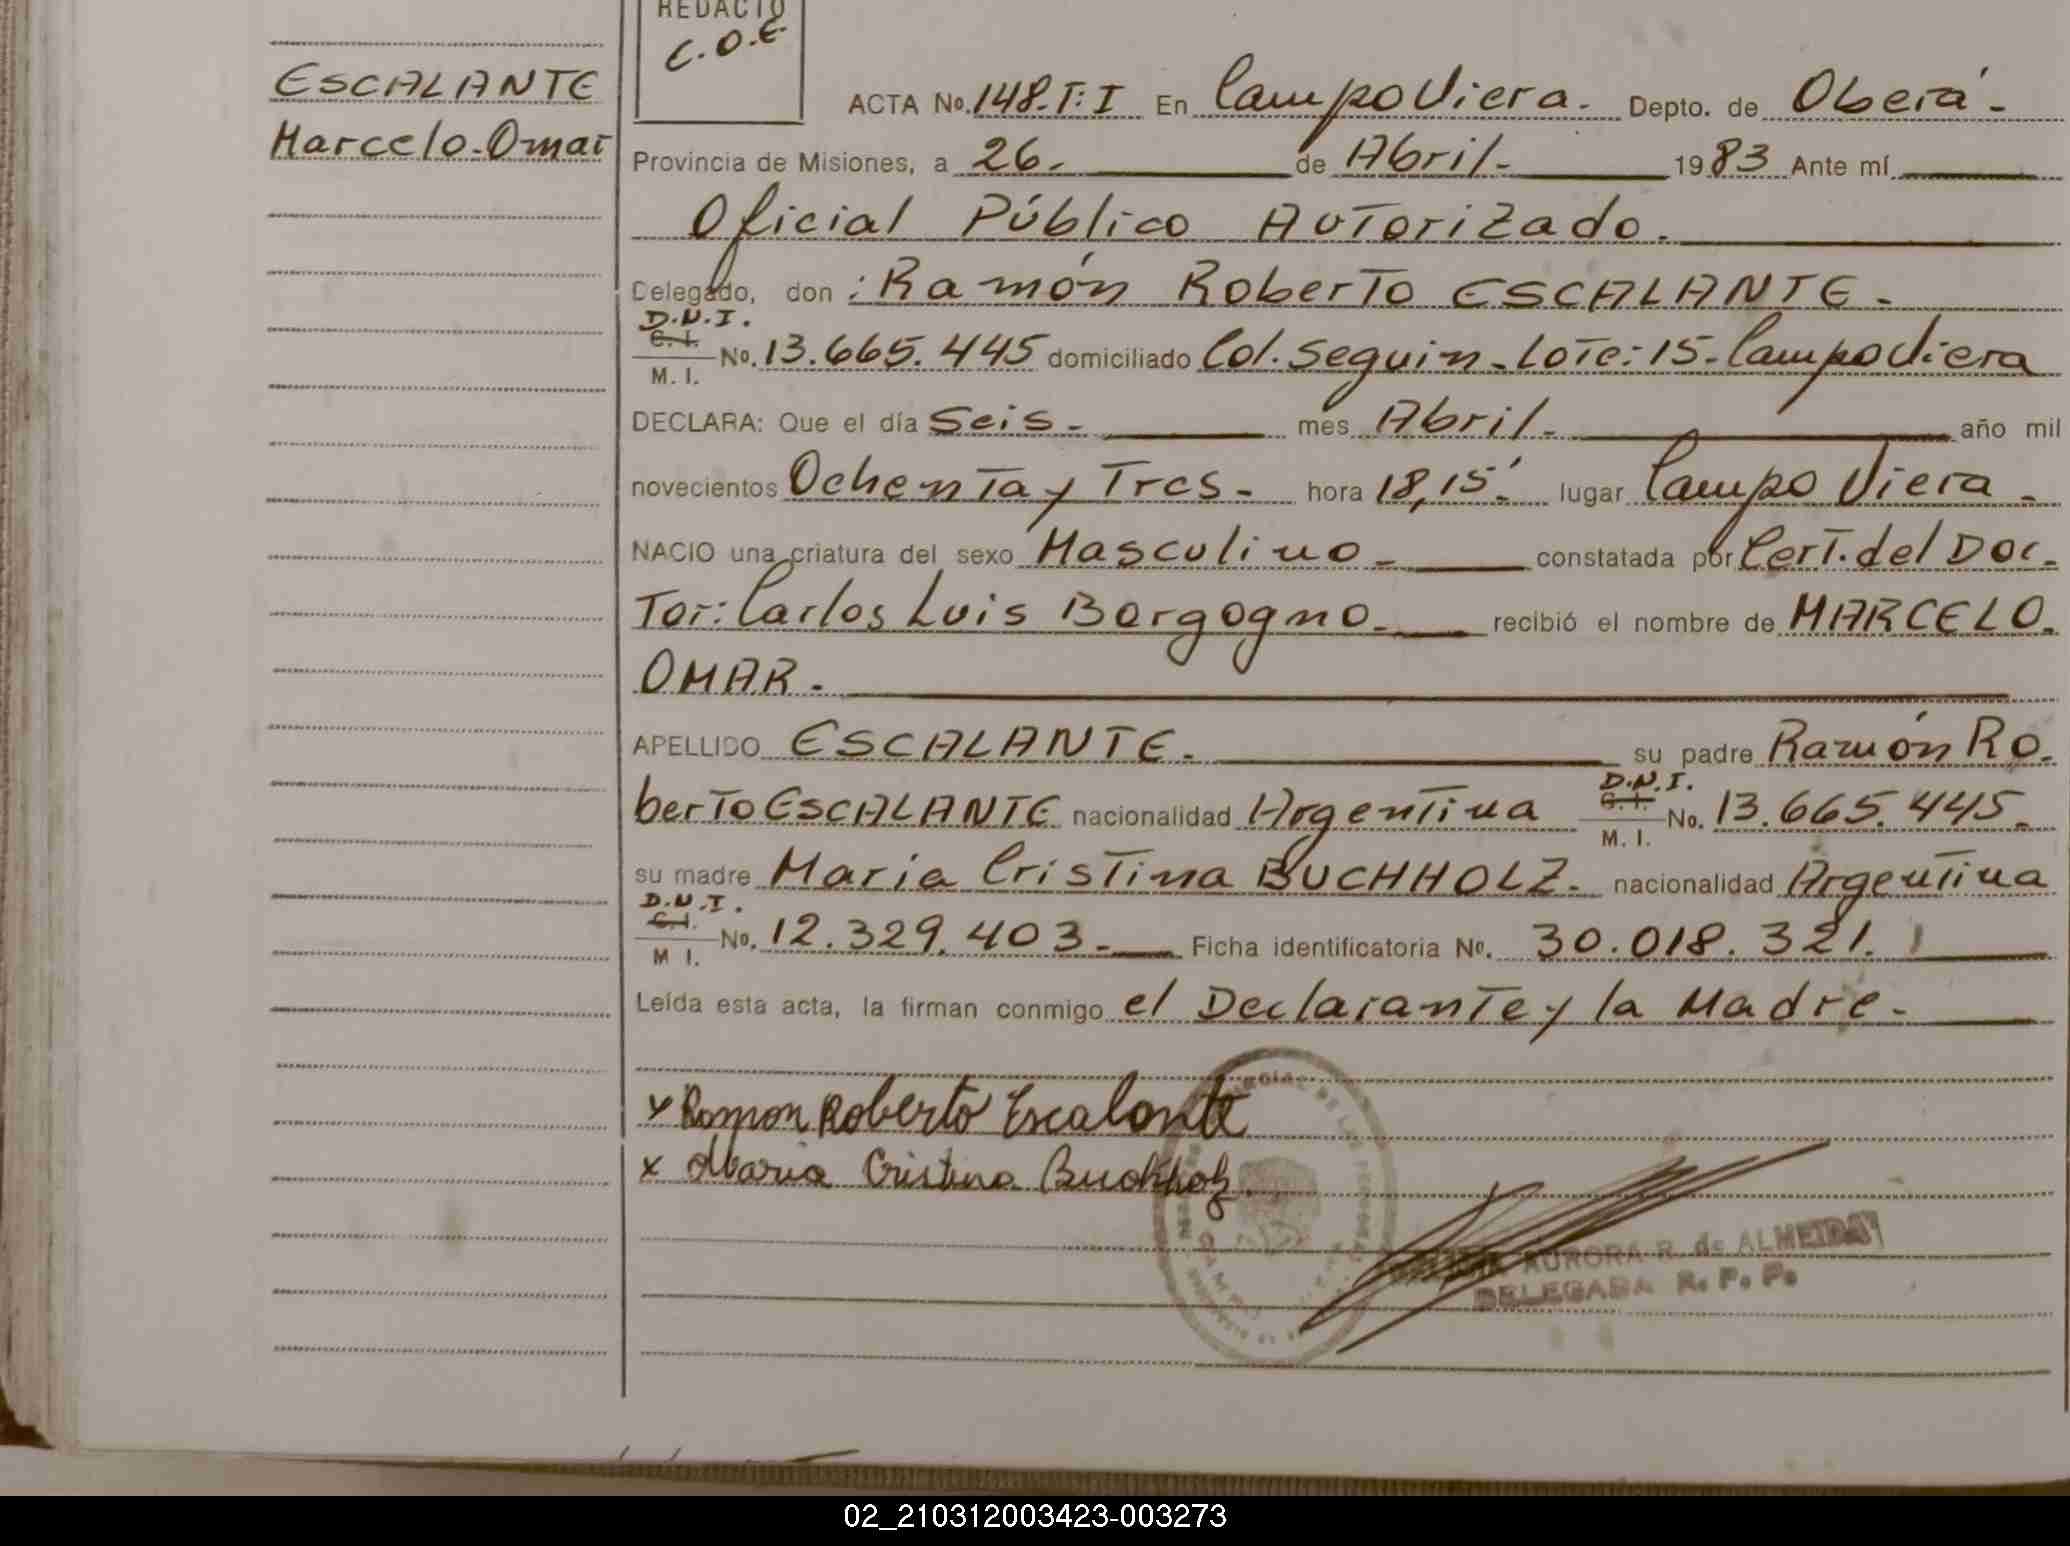 REDACTO
C.O.E.
ESCALANTE
Marcelo-Omar
ACTA No. 148.T:I En Campo Viera. Depto. de Oberá-
Provincia de Misiones, a 26. de Abril- 1983 Ante mí
Oficial Público Autorizado.
Delegado, don: Ramón Roberto ESCALANTE.
D.N.I.
C. I.
M. I.
No. 13.665.445 domiciliado Col. Seguin-Lote:15-Campo Viera
DECLARA: Que el día Seis- mes Abril- año mil
novecientos Ochenta y Tres- hora 18,15' lugar Campo Viera-
NACIO una criatura del sexo Masculino- constatada por Cert. del Doc-
Tor: Carlos Luis Borgogno- recibió el nombre de MARCELO-
OMAR.
APELLIDO ESCALANTE. su padre Ramón Ro-
berto ESCALANTE nacionalidad Argentina D.N.I.
C. I.
M. I.
No. 13.665.445.
su madre Maria Cristina BUCHHOLZ- nacionalidad Argentina
D.N.I.
C. I.
M I.
No. 12.329.403- Ficha identificatoria No. 30.018.321.
Leída esta acta, la firman conmigo el Declarante y la Madre-
x Ramon Roberto Escalante
x Maria Cristina Buchholz
AURORA R. de ALMEIDA
DELEGADA R. P. P.
02_210312003423-003273